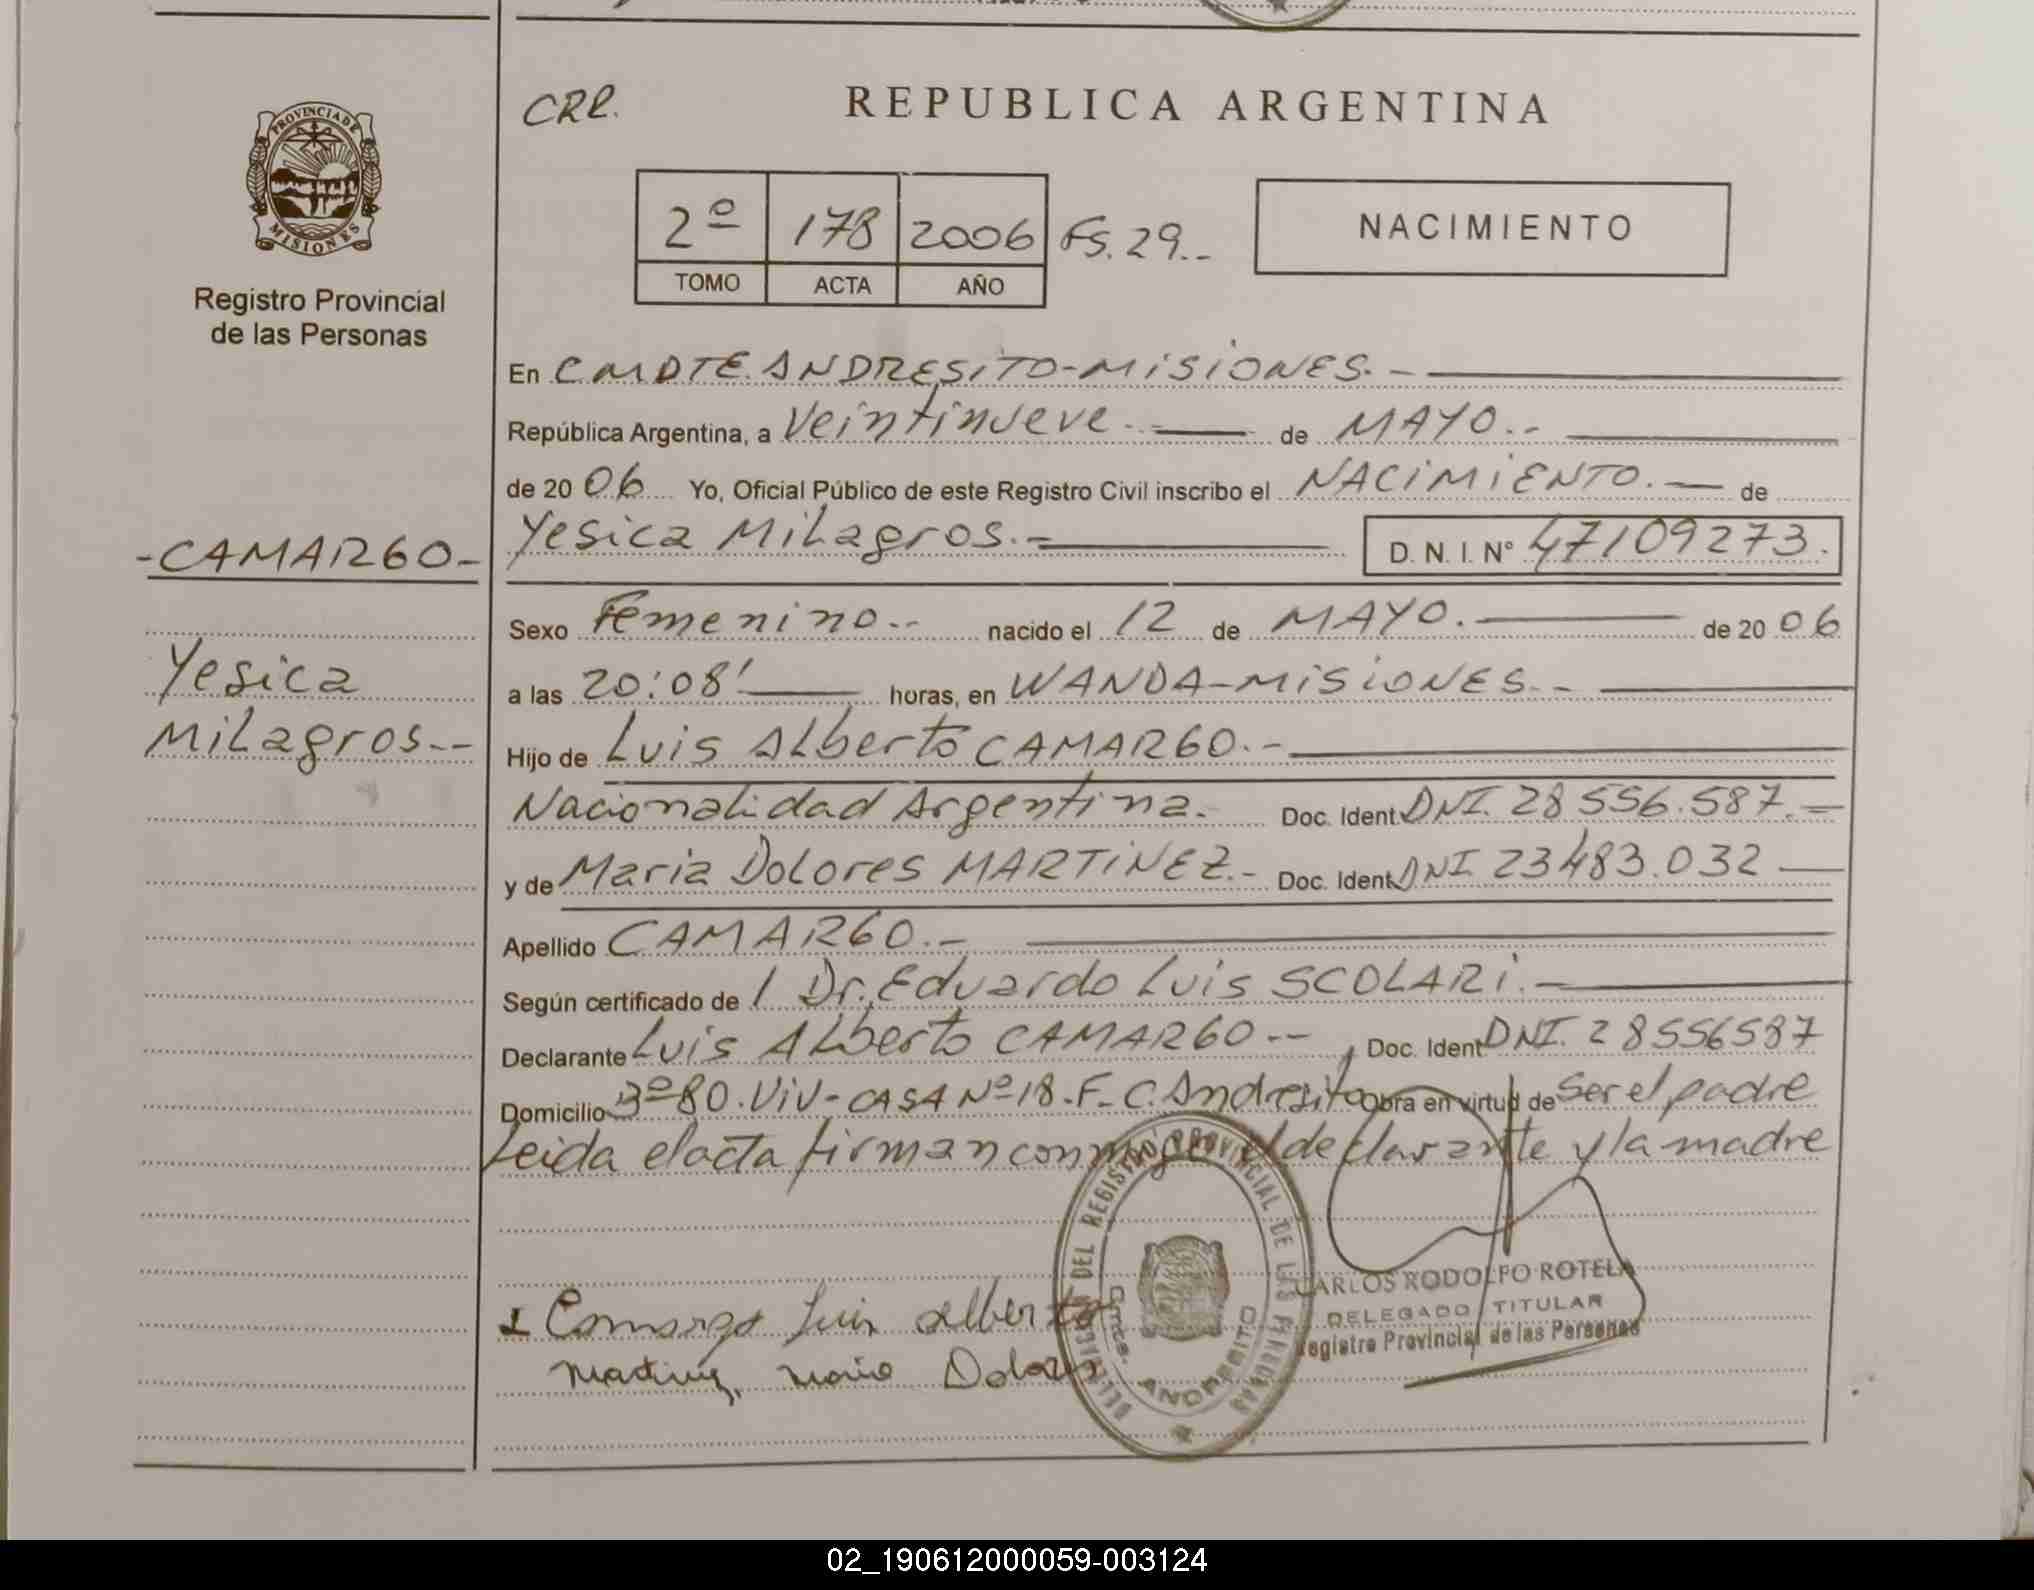 PROVINCIA DE
MISIONES
Registro Provincial
de las Personas
-CAMARGO-
Yesica
Milagros.--
CRR.
REPUBLICA ARGENTINA
2º 178 2006 Fs. 29.--
TOMO ACTA AÑO
NACIMIENTO
En CMDTE. ANDRESITO-MISIONES.-
República Argentina, a Veintinueve.- de MAYO.--
de 2006 Yo, Oficial Público de este Registro Civil inscribo el NACIMIENTO.- de
Yesica Milagros.- D. N. I. Nº 47109273.
Sexo Femenino.-- nacido el 12 de MAYO. de 2006
a las 20:08' horas, en WANDA-MISIONES.--
Hijo de Luis Alberto CAMARGO.--
Nacionalidad Argentina.- Doc. Ident. DNI. 28556.587.-
y de Maria Dolores MARTINEZ.- Doc. Ident. DNI 23483.032
Apellido CAMARGO.-
Según certificado de / Dr. Eduardo Luis SCOLARI.-
Declarante Luis Alberto CAMARGO-- Doc. Ident. DNI. 28556587
Domicilio 3º 80. Viv- CASA Nº 18. F- C. Andresito Obra en virtud de ser el padre
Leida el acta firman conmigo el declarante y la madre
Camargo Luis alberto
Martinez, Maria Dolores
DELEGACION DEL REGISTRO PROVINCIAL DE LAS PERSONAS
Dmte. ANDRESITO
CARLOS RODOLFO ROTELA
DELEGADO TITULAR
Registro Provincial de las Personas
02_190612000059-003124